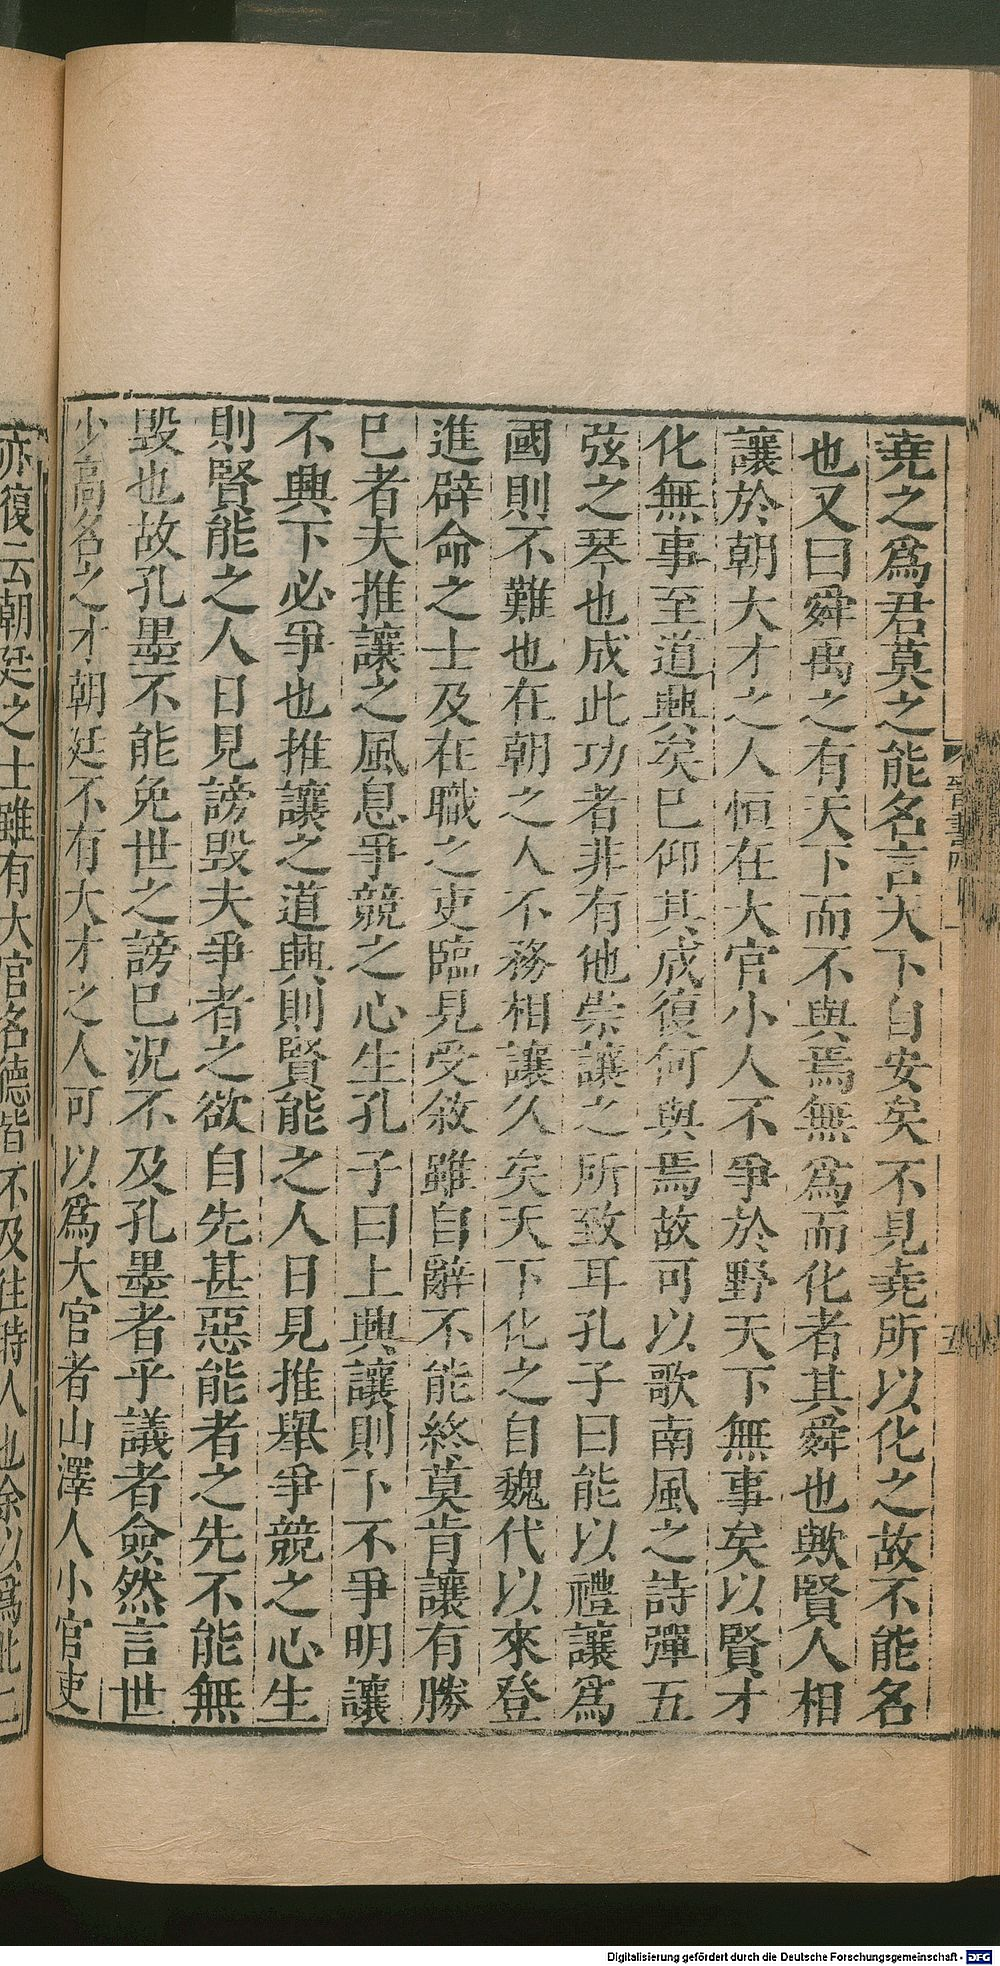 堯之爲君莫之能名言天下自安矣不見堯所以化之故不能名
也又曰舜禹之有天下而不與焉無爲而化者其舜也歟賢人相
讓於朝大才之人恒在大官小人不爭於野天下無事矣以賢才
化無事至道興矣已仰其成復何與焉故可以歌南風之詩彈五
弦之琴也成此功者非有他崇讓之所致耳孔子曰能以禮讓爲
國則不難也在朝之人不務相讓久矣天下化之自魏代以來登
進辟命之士及在職之吏臨見受敘雖自辭不能終莫肯讓有勝
已者夫推讓之風息爭競之心生孔子曰上興讓則下不爭明讓
不興下必爭也推讓之道興則賢能之人日見推舉爭競之心生
則賢能之人日見謗毀夫爭者之欲自先甚惡能者之先不能無
毀也故孔墨不能免世之謗已況不及孔墨者乎議者僉然言世
少高名之才朝廷不有大才之人可以爲大官者山澤人小官吏
亦復云朝廷之士雖有大官名德皆不及往時人也余以爲此二
晉書
五
Digitalisierung gefördert durch die Deutsche Forschungsgemeinschaft - DFG